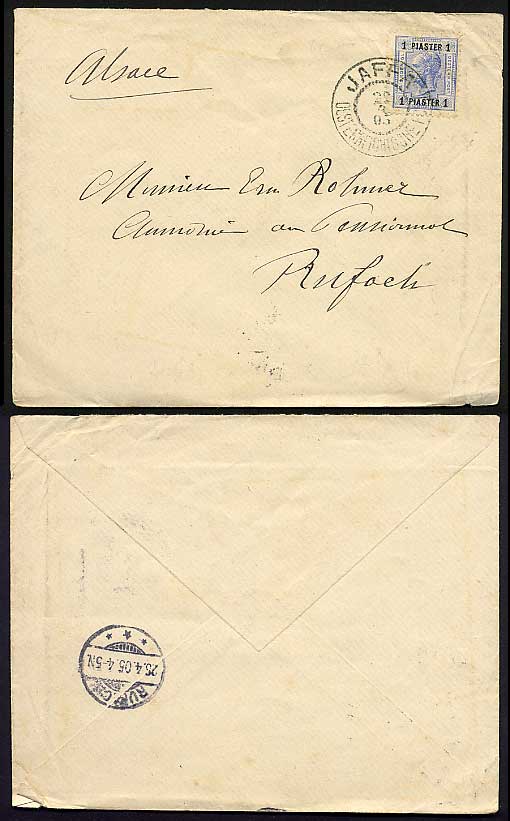 Alsace
1 PIASTER 1
1 PIASTER 1
JAFFA
05
OESTERREICHISCHE
Monsieur Ern Rohmer
Aumônier au Pensionnat
Rufach
26.4.05.4-5N.
RUFACH